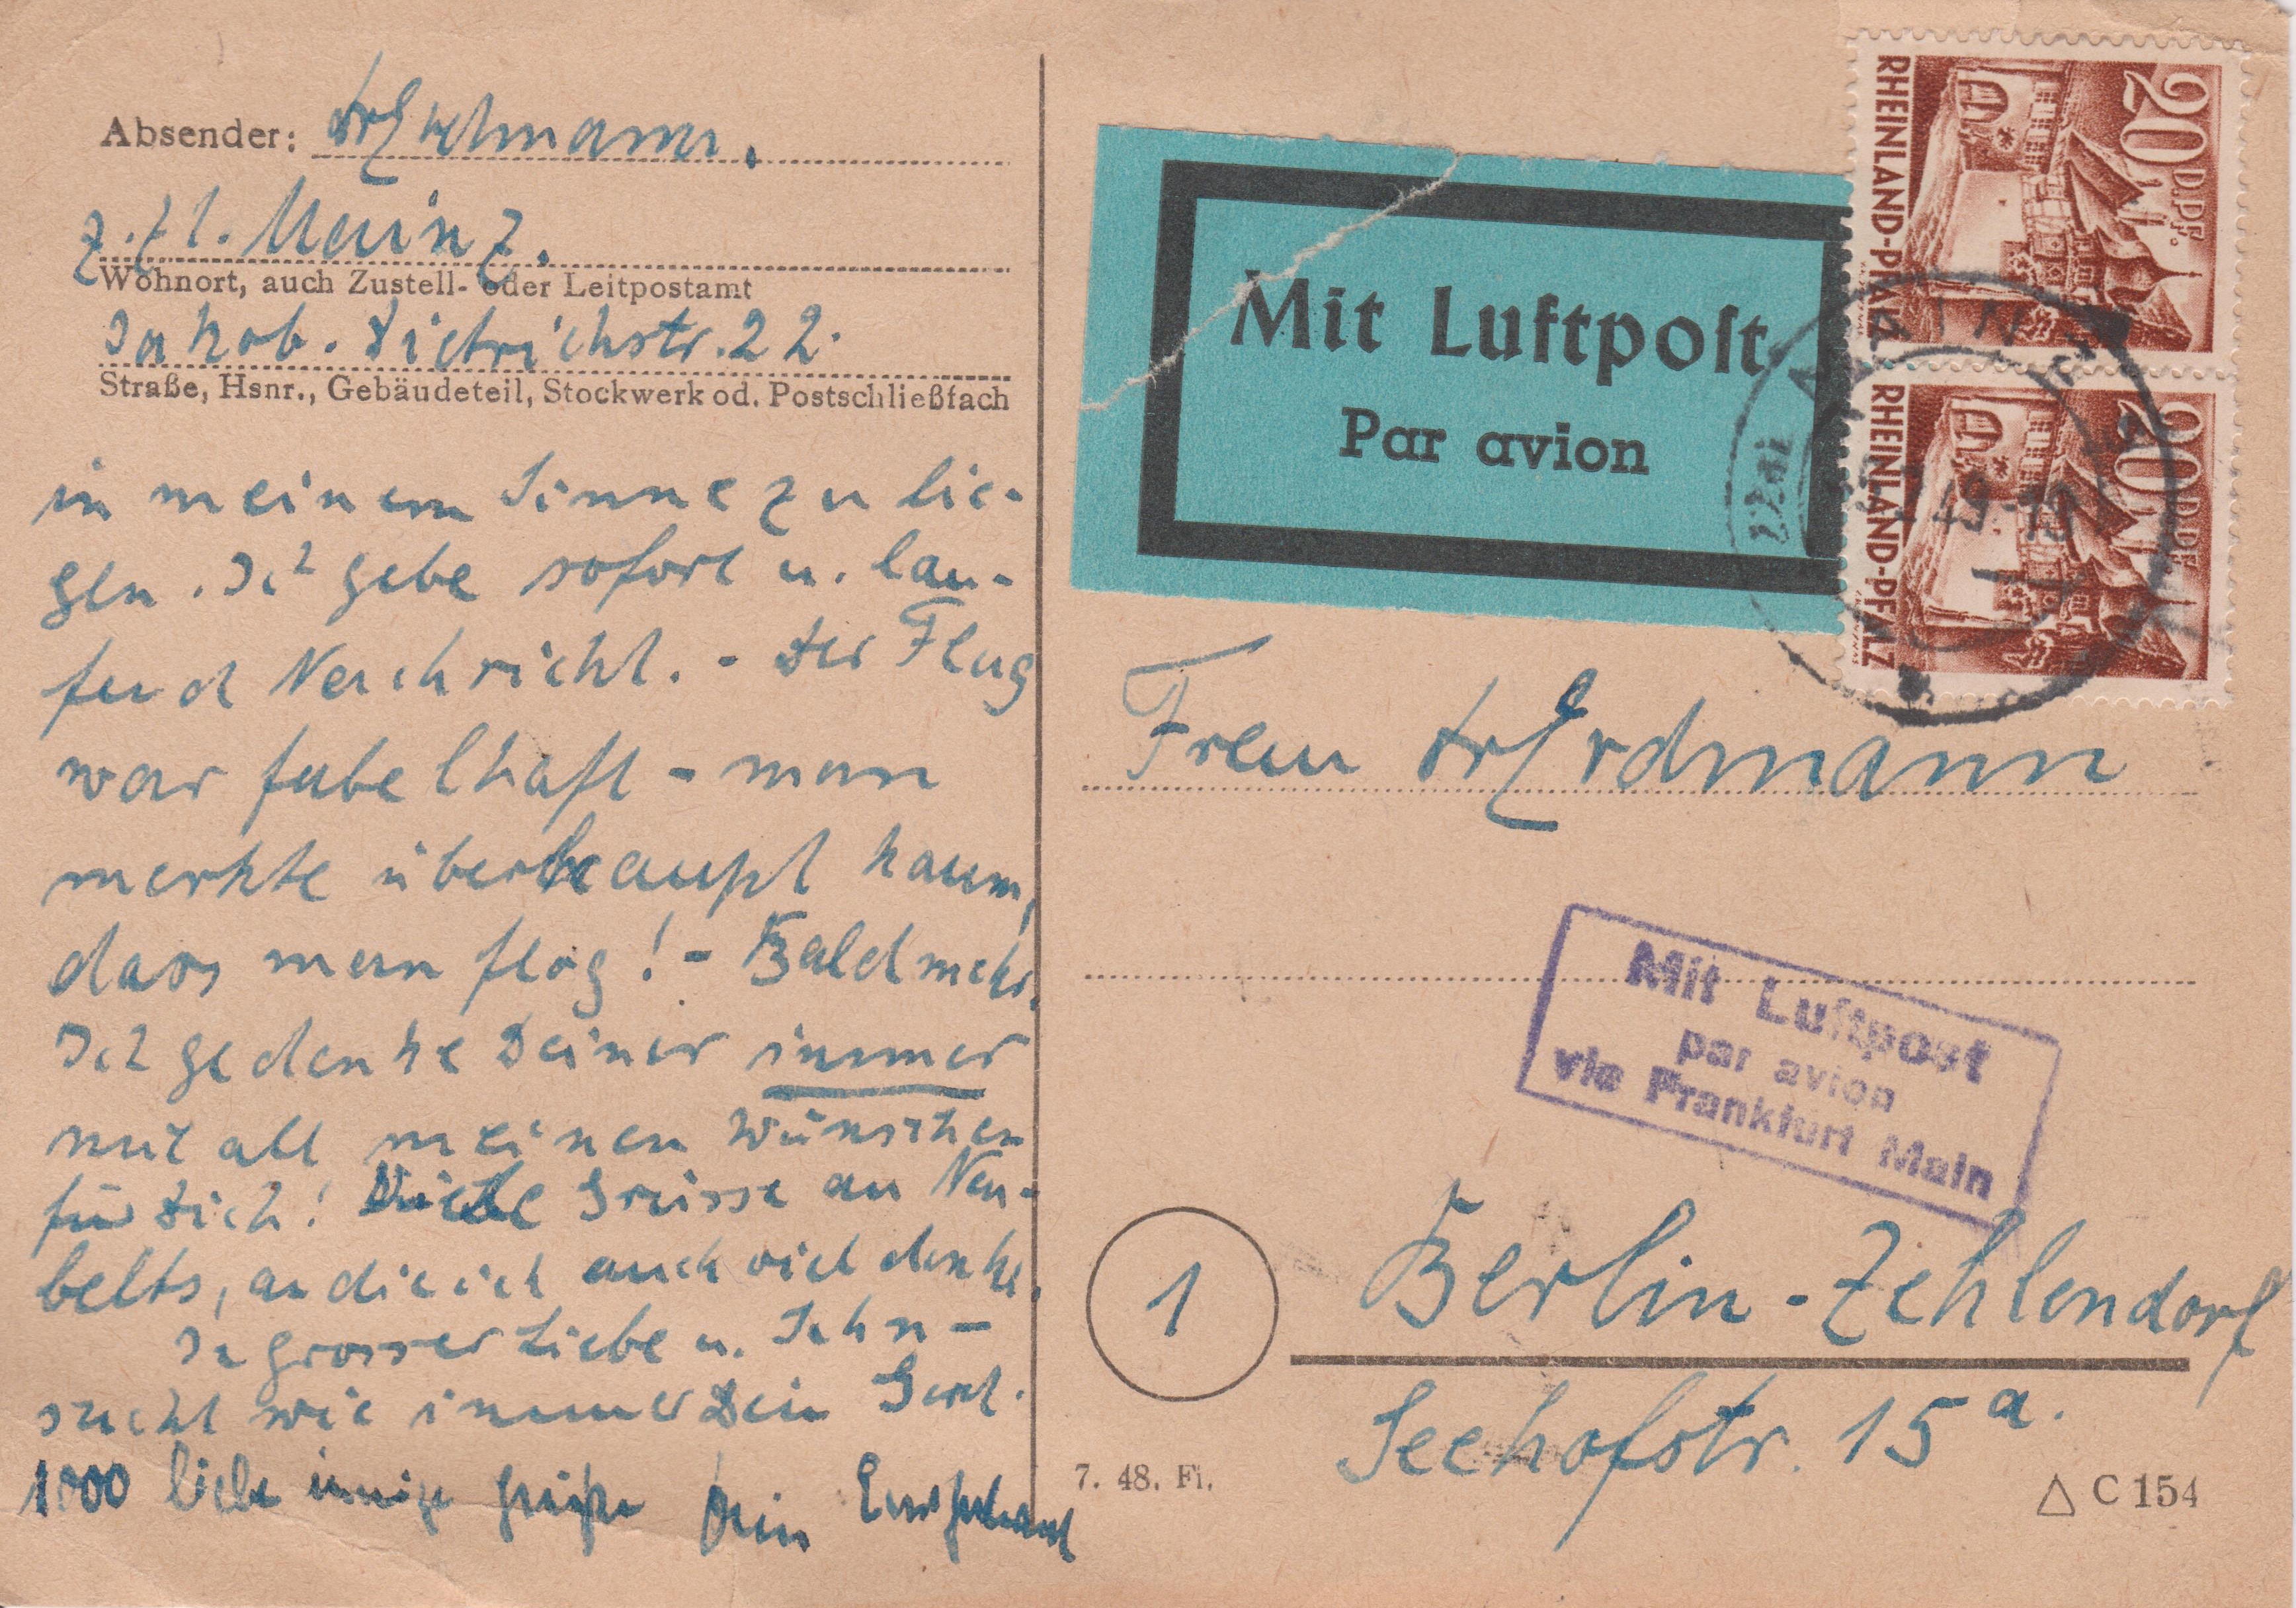 Absender: Dr Erdmann.
z. Zt. Mainz.
Wohnort, auch Zustell- oder Leitpostamt
Jakob-Dietrichstr. 22.
Straße, Hsnr., Gebäudeteil, Stockwerk od. Postschließfach
in meinem Sinne zu lie-
gen. Ich gebe sofort u. lau-
fend Nachricht. - Der Flug
war fabelhaft - man
merkte überhaupt kaum,
dass man flog! - Bald mehr.
Ich gedenke Deiner immer
mit all meinen Wünschen
für Dich! Viele Grüsse an Neu-
belts, an die ich auch viel denke.
In grosser Liebe u. Sehn-
sucht wie immer Dein Gerd.
1000 liebe innige Grüße Dein
20 D.PF.
RHEINLAND-PFALZ
20 D.PF.
RHEINLAND-PFALZ
MAINZ
49-19
Mit Luftpost
Par avion
Frau Dr Erdmann
Mit Luftpost
par avion
via Frankfurt Main
1
Berlin-Zehlendorf
Seehofstr. 15 a.
7. 48. Fi.
△ C 154